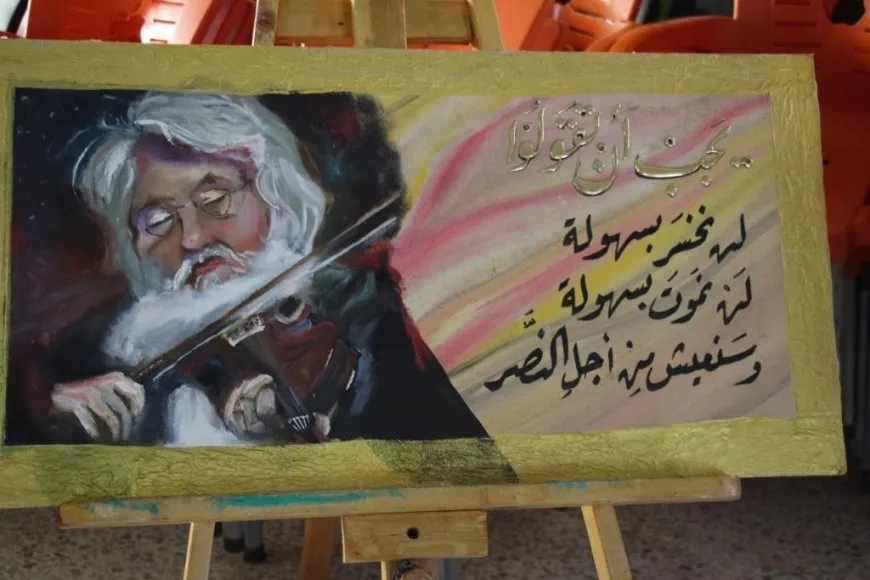 يَجِبْ أن تَقَولَوُا
لن نخسَر بسهولة
لَنْ نموَتَ بسهولة
وسَنعيش مِن أجلِ النصَّر